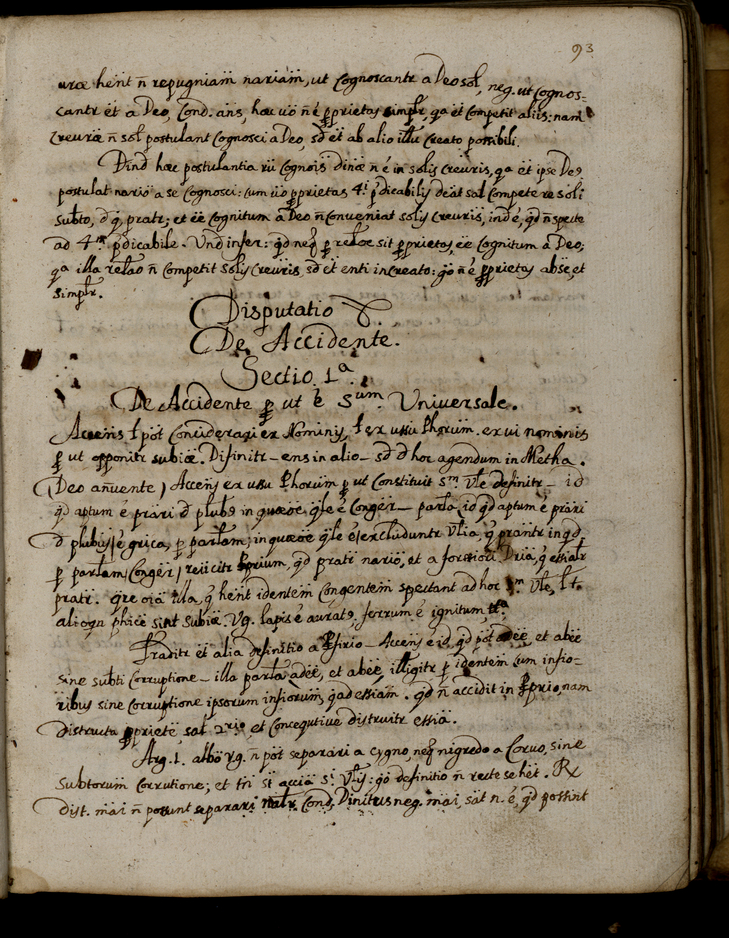 93
uræ heñt ñ repugniam̈ nariam̈, ut Cognoscantr a Deo sol, neg. ut Cognos-
cantr ët a Deo, Cond. añs, hoc uō ñ é pprietas simplr, qa et Competit aliis: nam
Creuræ ñ sol postulant Cognosci a Deo, sd ët ab alio illu Creato possibili.
Dind hæc postulantia Cognois̈ dinæ n é in solis Creuris, qa et ipse De9
postulat nario a se Cognosci: cum uō pprietas 4i pdicabilis deät sal Competere soli
subto, d q pratr; et ëë Cognitum a Deo ñ Conveniat solis Creuris, ind é, qd ñ specte
ad 4m pdicabile. Und infer: qd neq p reläoe sit pprietas, ëë Cognitum a Deo;
qa illa reläo ñ Competit Solis Creuris, sd et enti increato: go ñ é pprietas abse, et
simplr.
Disputatio
De Accidente.
Sectio 1a
De Accidente p ut é 5um Universale.
Accëns ł pöt Considerari ex Nominis, ł ex ussu Phorum̈. ex vi nominis
p ut opponitr subiæ. Difinitr – ens in alio – sd d hoc agendum in Metha.
Deo añuente) Accëns ex ussu Phorum̈ p ut Constituit 5m Vle definitr – id
qd aptum e präri d plubs in quæöe qle é Conger – parla, id qd aptum é präri
d plubus, é grica, p parlam; in quæöe qle é, excluduntr Vlia, q präntr in qd
p parlam, Conger, reiicitr pprium, qd pratr nario, et a fortiori Dria, q essialr
pratr. qre oiä illa, q heñt identem̈ Congentem̈ spectant ad hoc 5m Vle, ł t.
aliqu phicë sint Subiæ. Vg. lapis é aurat9, ferrum é ignitum, tta.
Traditr et alia definitio a Pfirio – Accëns é id, qd pöt adëë, et abëë
sine subti Corruptione – illa parla adëë, et abëë illigitr p identem̈ cum infio-
ribus sine Corruptione ipsorum infiorum, qad essiam. qd ñ accidit in pprio, nam
distructa pprietë, sal 2rio, et Concequtive distruitr essia.
Arg. 1. albo vg. ñ pöt separari a cygno, neq nigredo a Corvo, sine
Subtorum̈ Corrutione; et tñ st acciä 5i Vlis: go definitio ñ recte se hët. Rx
dist. mai ñ possunt separari natlr. Cond, Dinitus neg. mai, sät n. é, qd possint